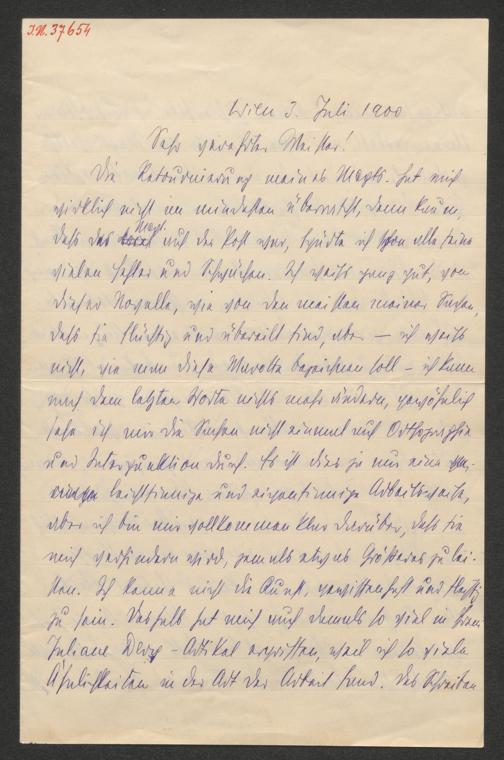 I.N. 37654
Wien 3. Juli 1900
Sehr verehrter Meister!
Die Retournierung meines Mcpts. hat mich
wirklich nicht im mindesten überrascht, denn kaum,
dass das Mcpt. auf der Post war, spürte ich schon alle seine
vielen Fehler und Schwächen. Ich weiß ganz gut, von
dieser Novelle, wie von den meisten meiner Sachen,
dass sie flüchtig und übereilt sind, aber – ich weiß
nicht, wie man diese Marotte bezeichnen soll – ich kann
nach dem letzten Worte nichts mehr ändern, gewöhnlich
sehe ich mir die Sachen nicht einmal auf Orthographie
und Interpunktion durch. Es ist dies ja nur eine
leichtsinnige und eigensinnige Arbeitsweise,
aber ich bin mir vollkommen klar darüber, dass sie
mich verhindern wird, jemals etwas Größeres zu lei-
sten. Ich kenne nicht die Kunst, gewissenhaft und fleißig
zu sein. Deshalb hat mich auch damals so viel in Ihrem
Juliane Déry-Artikel ergriffen, weil ich so viele
Ähnlichkeiten in der Art der Arbeit fand. Das Schreiben